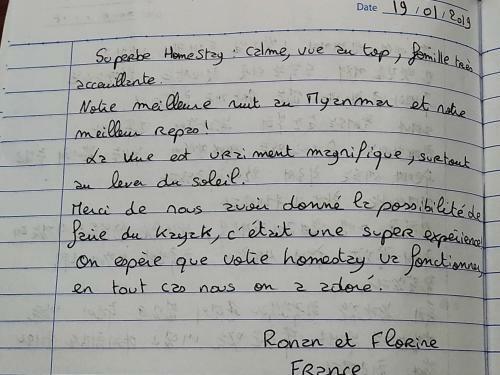 Date 19/01/2019
Superbe Homestay : calme, vue au top, famille très
accueillante.
Notre meilleure nuit au Myanmar et notre
meilleur repas !
La vue est vraiment magnifique, surtout
au lever du soleil.
Merci de nous avoir donné la possibilité de
faire du kayak, c'était une super expérience
On espère que votre homestay va fonctionner,
en tout cas nous on a adoré.
Ronan et Florine
France